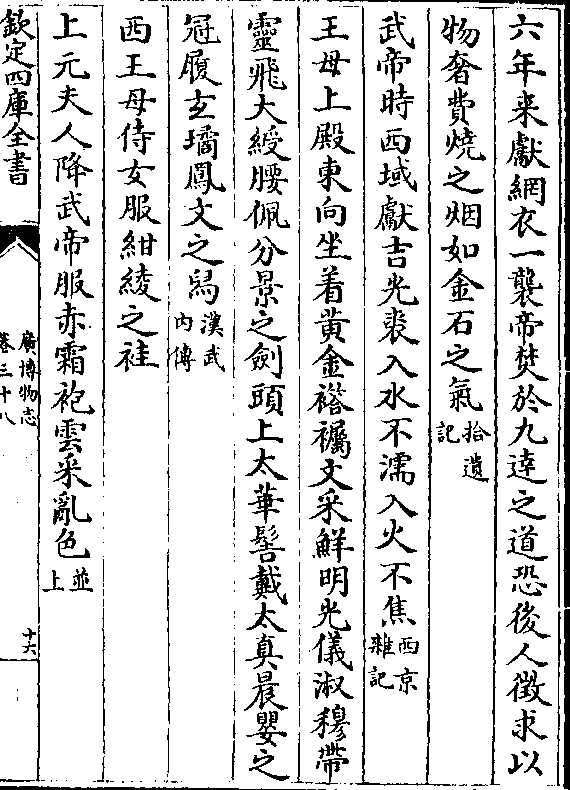 六年来獻網衣一襲帝焚於九逵之道恐後人徴求以
物奢費燒之烟如金石之氣拾遺記
武帝時西域獻吉光裘入水不濡入火不焦西京雜記
王母上殿東向坐着黄金褡襡文采鮮明光儀淑穆帶
靈飛大綬腰佩分景之劍頭上太華髻戴太真晨嬰之
冠履玄璚鳳文之舄漢武內傳
西王母侍女服紺綾之袿
上元夫人降武帝服赤霜袍雲采亂色並上
欽定四庫全書
廣博物志
卷三十八
十六